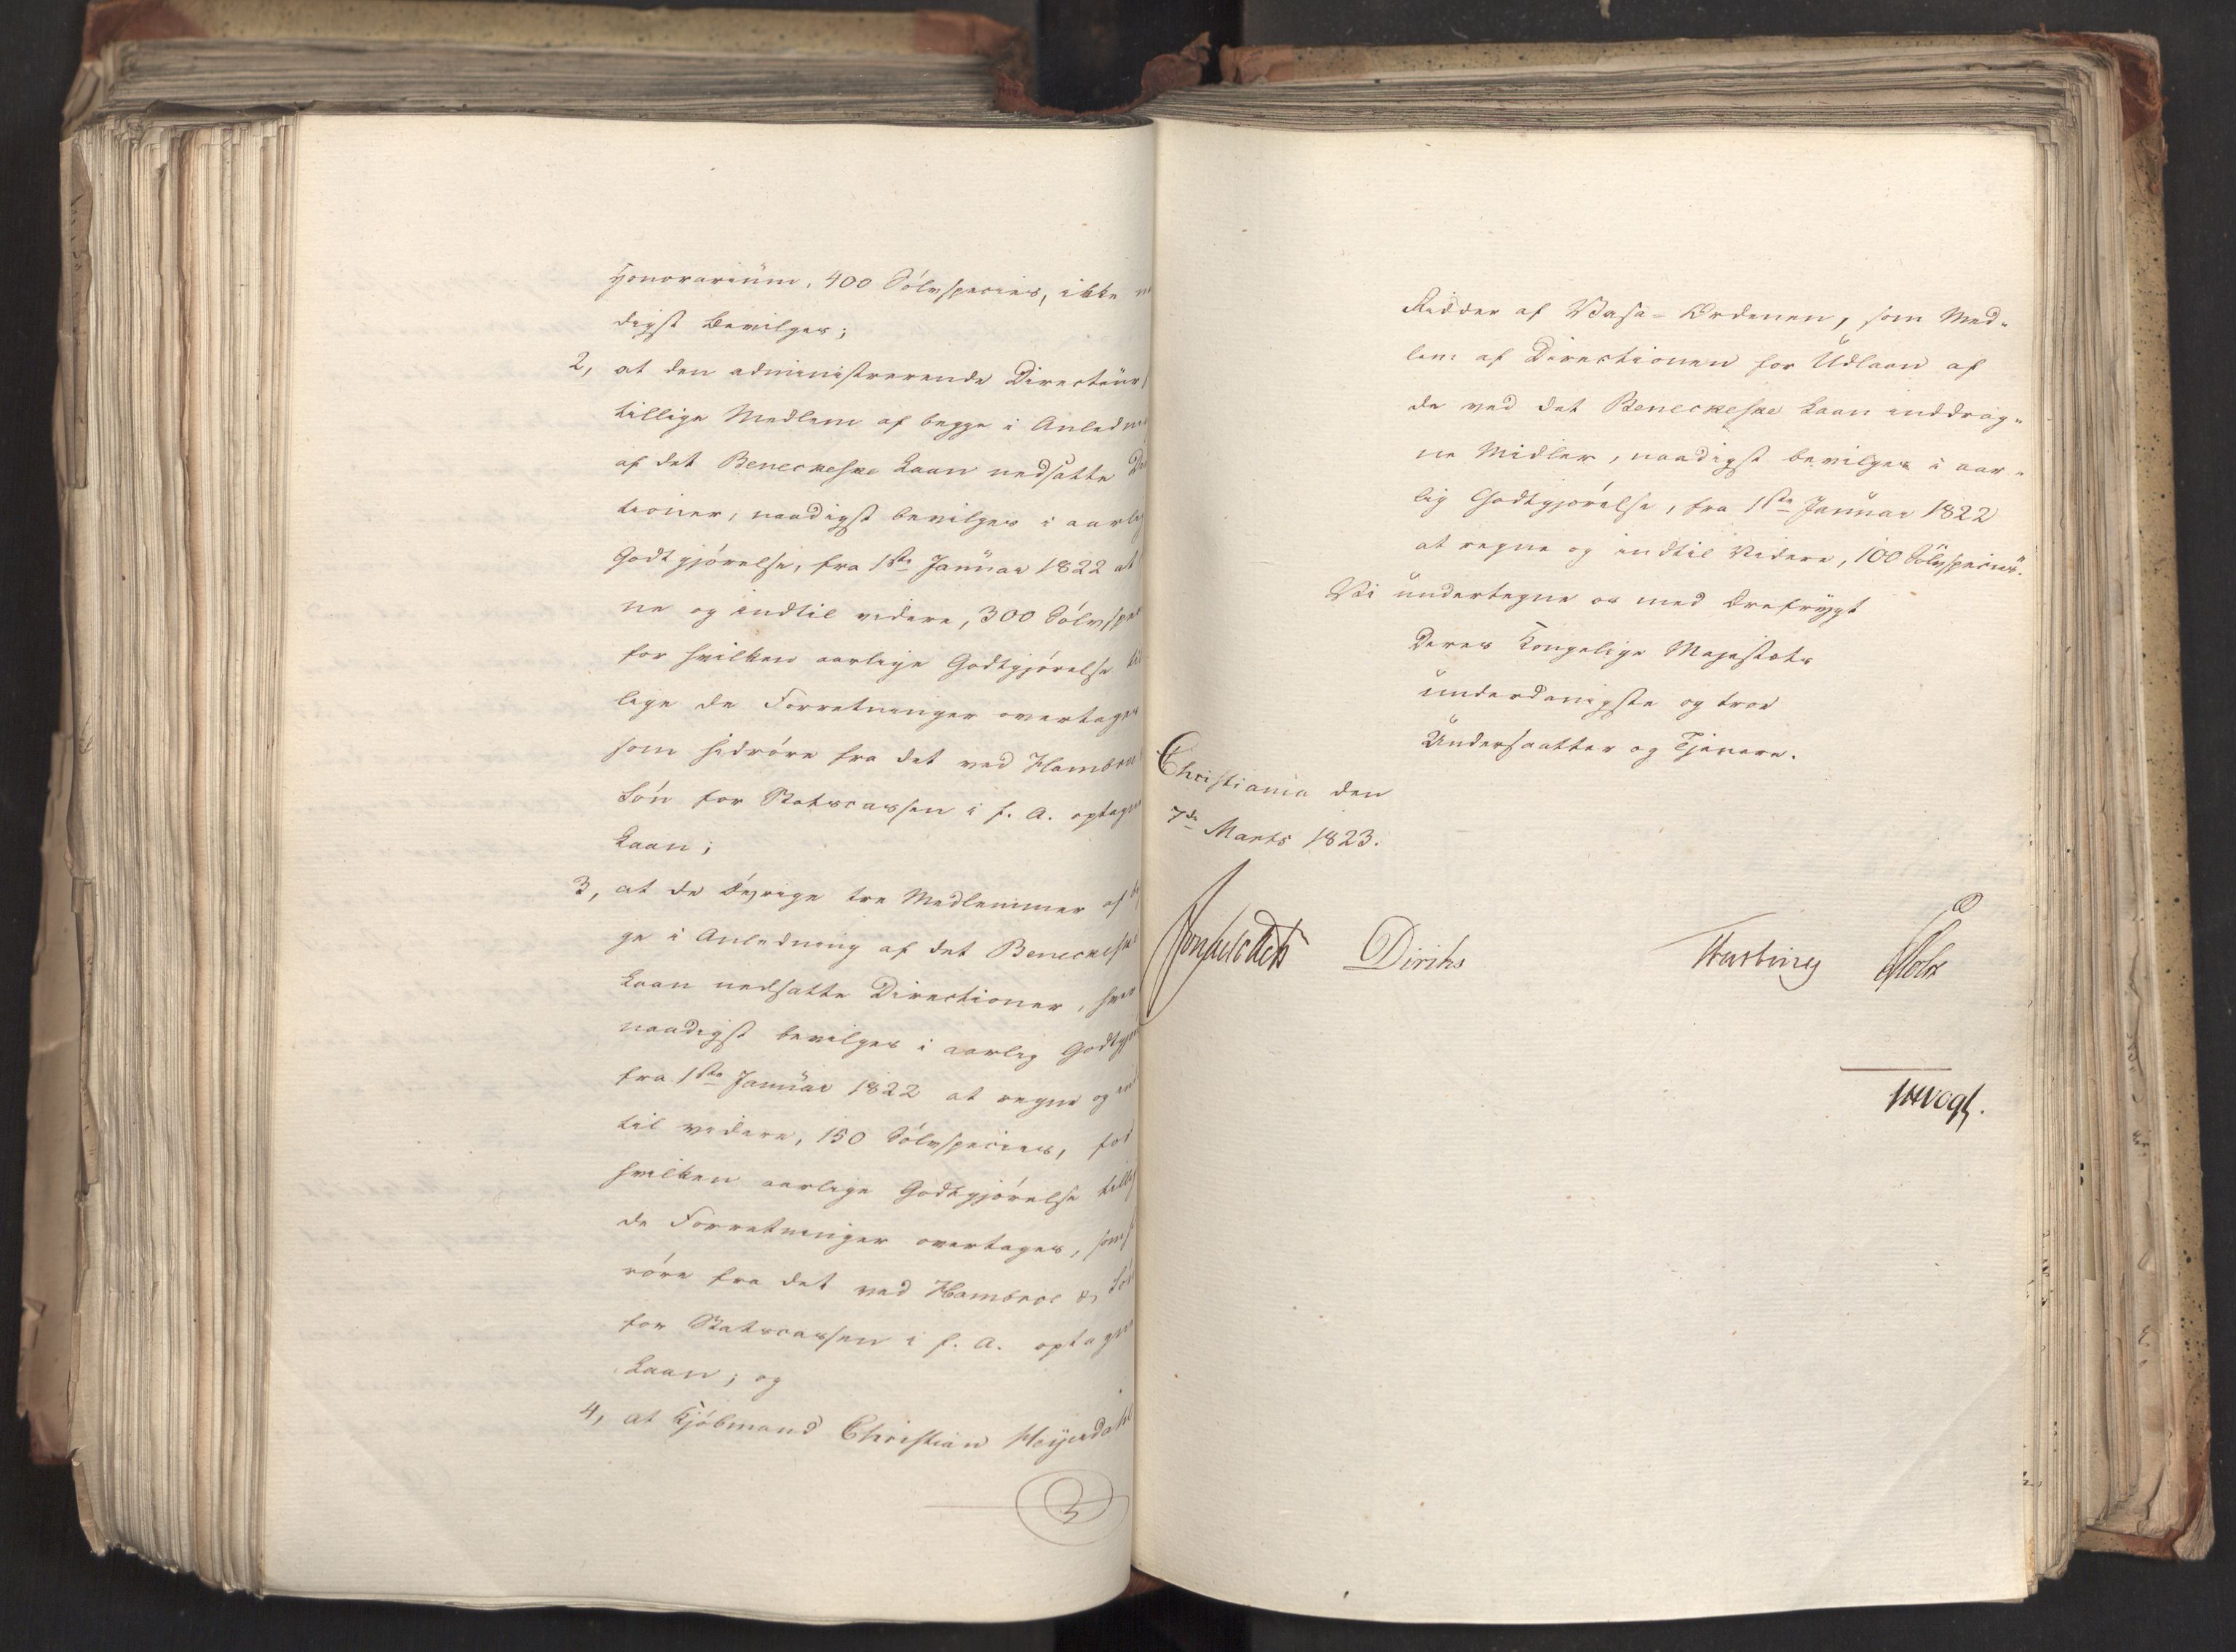 Honorarium, 400 Sölvspecies, ikke
digst bevilges;
2, at den administrerende Directeur
tillige Medlem af begge i Anledn
af det Beneckeske Laan nedsatte
tioner, naadigst bevilges i aarlig
Godtgjörelse, fra 1ste Januar 1822 at
ne og indtil videre, 300 Sölvspe
for hvilken aarlige Godtgjörelse til
lige de Forretninger overtages
som hidröre fra det ved Hambroe
Sön for Statscassen i f. A. optagne
Laan;
3, at de övrige tre Medlemmer af
ge i Anledning af det Beneckeske
Laan nedsatte Directioner, hver
naadigst bevilges i aarlig Godtgjö
fra 1ste Januar 1822 at regne og ind
til videre, 150 Sölvspecies, for
hvilken aarlige Godtgjörelse tillig
de Forretninger overtages, som
röre fra det ved Hambroe & Sön
for Statscassen i f. A. optagne
Laan; og
4, at Kjöbmand Christian Heyerdahl
Ridder af Vasa-Ordenen, som Med-
lem af Directionen for Udlaan af
de ved det Beneckeske Laan inddrag-
ne Midler, naadigst bevilges i aar-
lig Godtgjörelse, fra 1ste Januar 1822
at regne og indtil videre, 100 Sölvspecies.
Vi undertegne os med Ærefrygt
Deres Kongelige Majestæts
underdanigste og troe
Undersaatter og Tjenere.
Christiania den
7de Marts 1823.
Sommerhielm Diriks Fasting Holst
JHVogt.